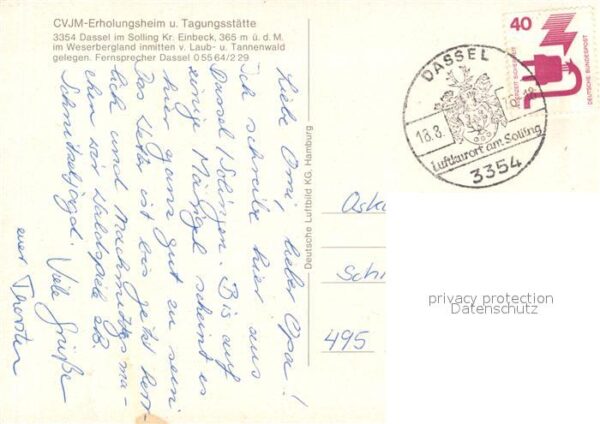 CVJM-Erholungsheim u. Tagungsstätte
3354 Dassel im Solling Kr. Einbeck, 365 m ü. d. M.
im Weserbergland inmitten v. Laub- u. Tannenwald
gelegen. Fernsprecher Dassel 0 55 64/2 29
Liebe Omi, lieber Opa!
ich schreibe hier aus
Dassel / Solingen. Bis auf
einige Mängel scheint es
hier ganz gut zu sein.
Das Wetter ist bis jetzt herr-
lich und Nachmittags ma-
chen wir Waldspiele z.B.
Schnitzeljagd. Viele Grüße
euer Thorsten
Deutsche Luftbild KG, Hamburg
40
DEUTSCHE BUNDESPOST
DASSEL
18.3.
Luftkurort am Solling
3354
Oska
Schi
495
privacy protection
Datenschutz